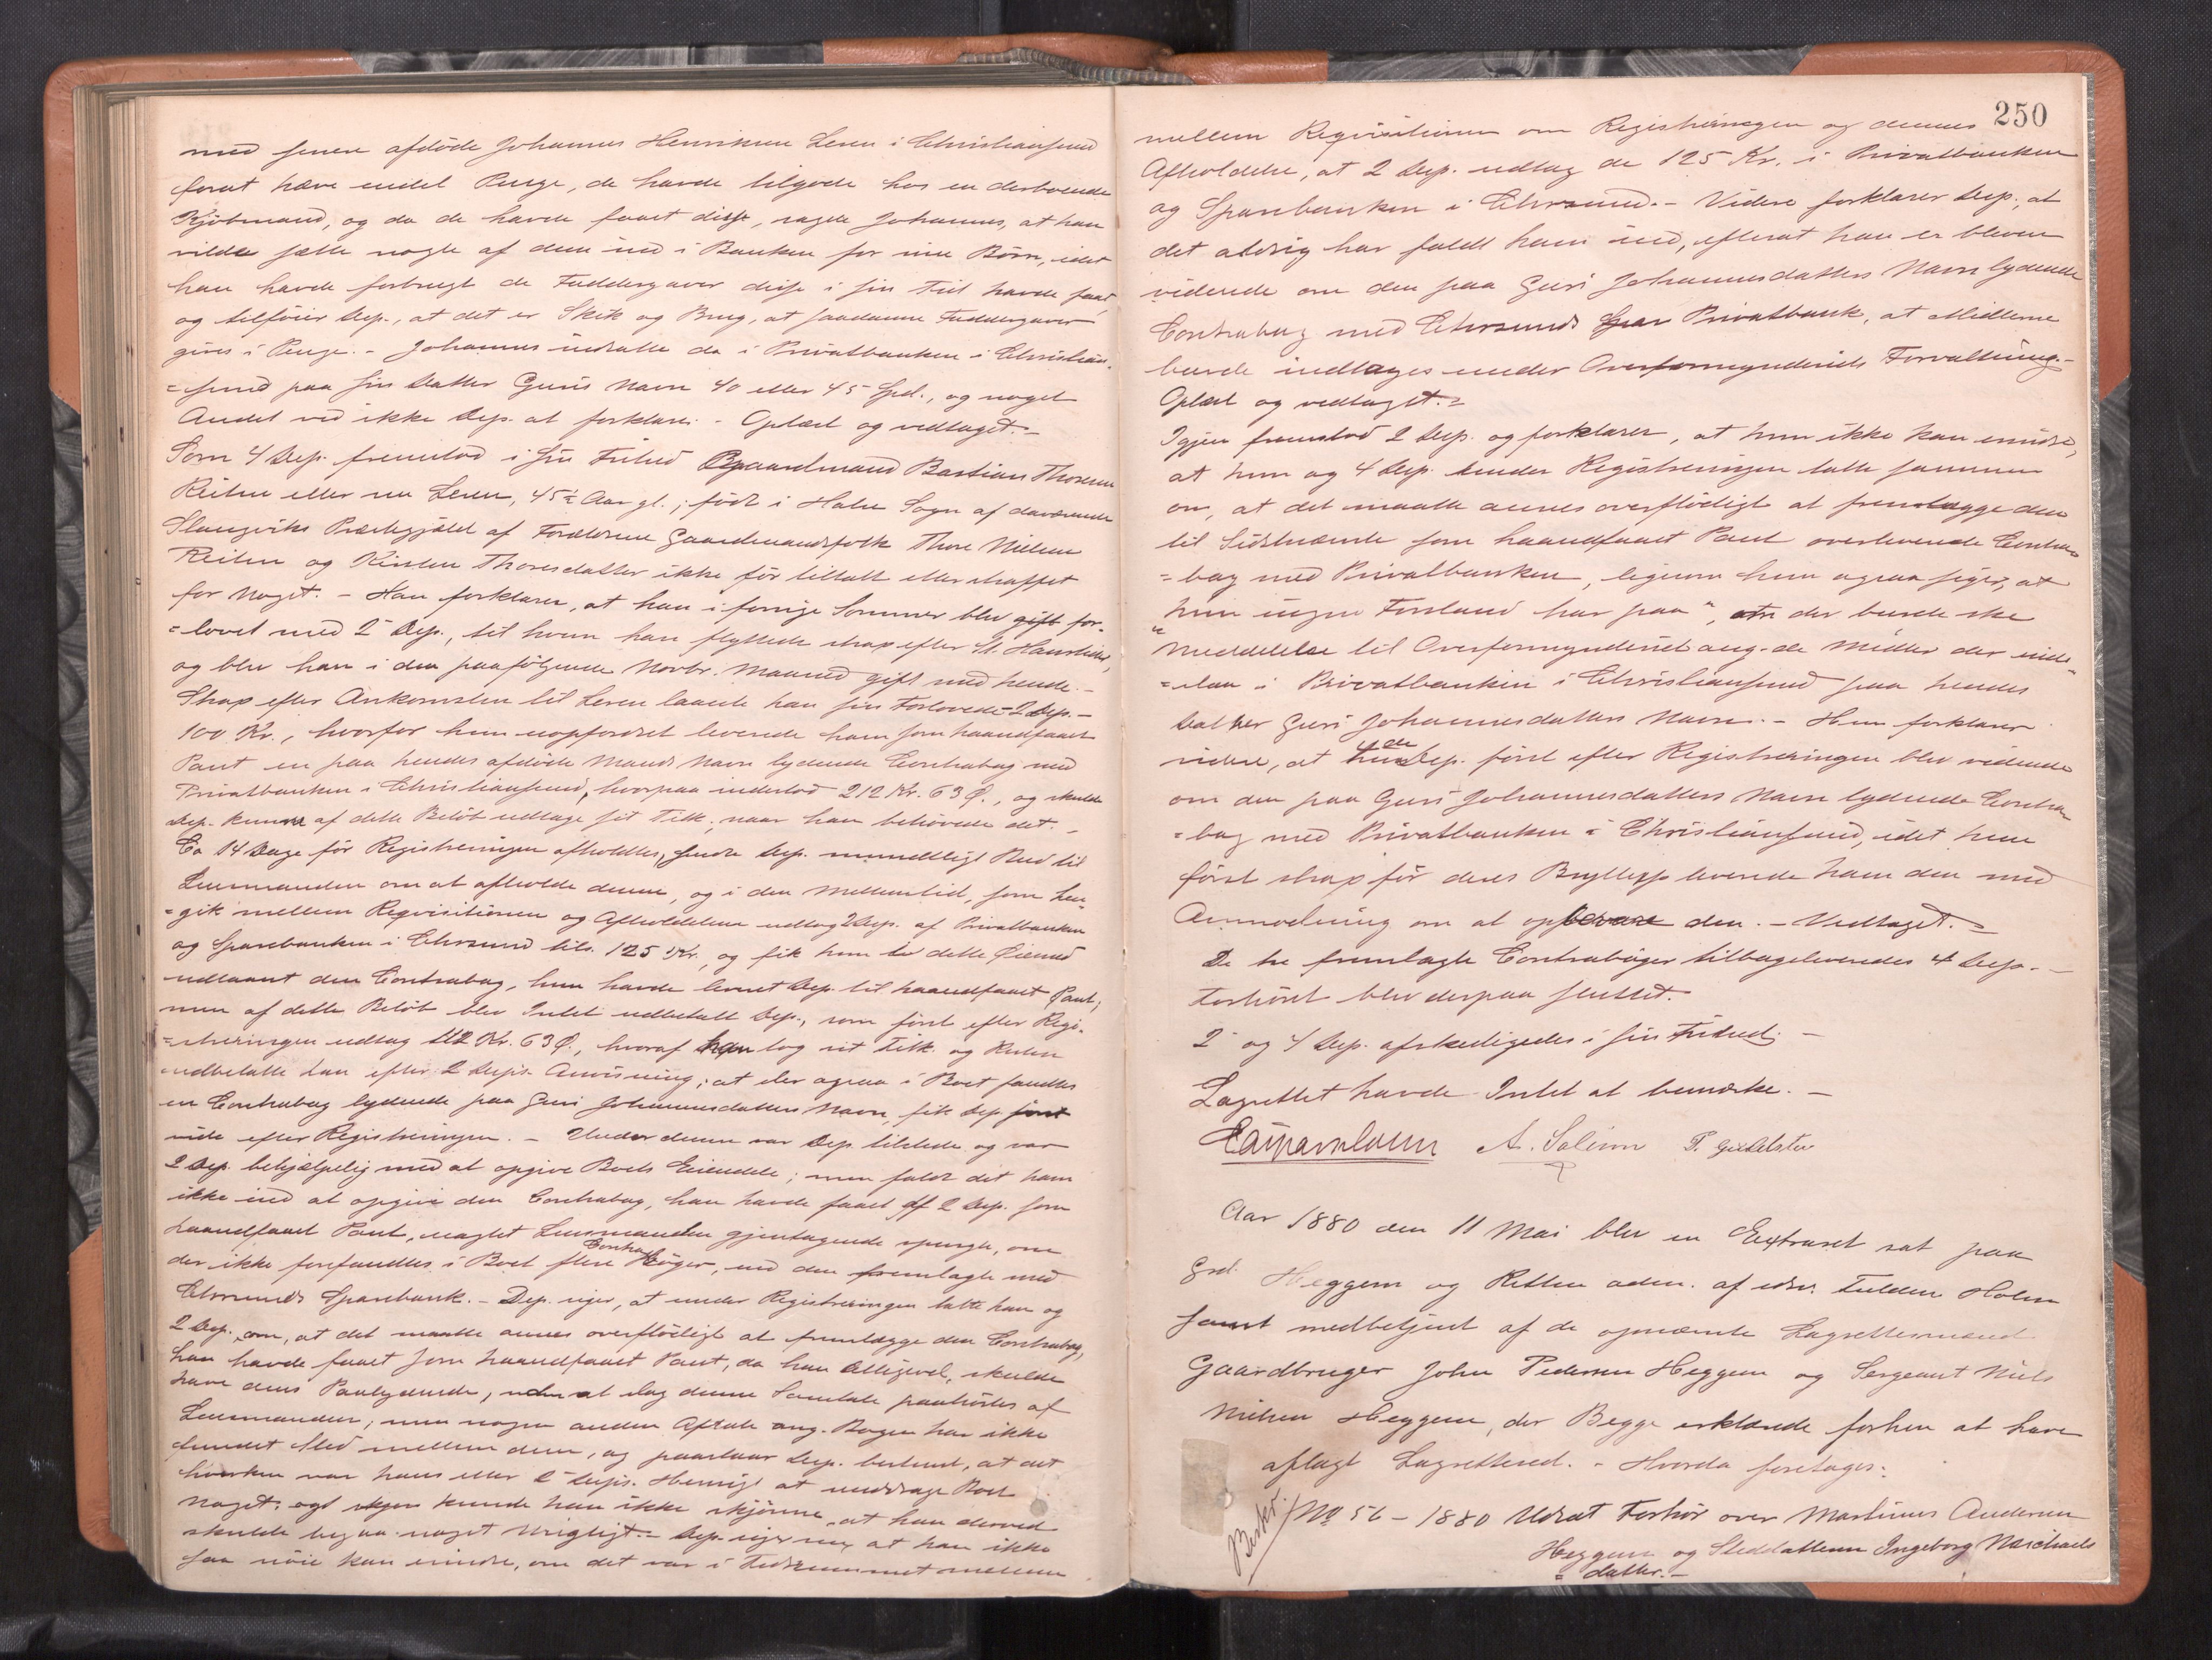 med senere afdöde Johannes Henriksen Leren i Christiansund
forat hæve endel Penge, de havde tilgode hos en derboende
Kjöbmand, og da de havde faaet disse, sagde Johannes, at han
vilde sætte nogle af dem ind i Banken for sine Børn, idet
han havde forbrugt de Faddergaver disse i sin Tid havde faaet,
og tilføier Dep., at det er Skik og Brug, at saadanne Faddergaver
gives i Penge. - Johannes indsatte da i Privatbanken i Christian-
=sund paa sin Datter Guris Navn 40 eller 45 Spd., og noget
Andet ved ikke Dep. at forklare. - Oplæst og vedtaget. -
Som 4 Dep. fremstod i sin Frihed Gaardmand Bastian Thoresen
Reiten eller nu Leren, 45½ Aar gl.; född i Halse Sogn af daværende
Stangviks Præstegjæld af Forældrene Gaardmandsfolk Thore Nielsen
Reiten og Kirsten Thoresdatter ikke för tiltalt eller straffet
for Noget. - Han forklarer, at han i forrige Sommer blev gift for-
=lovet med 2 Dep., til hvem han flyttede strax efter St. Hanstid,
og blev han i den paafölgende Novbr. Maaned gift med hende. -
Strax efter Ankomsten til Leren laante han sin Forlovede 2 Dep. -
100 Kr., hvorfor hun uopfordret leverede ham som haandfaaet
Pant en paa hendes afdöde Mands Navn lydende Contrabog med
Privatbanken i Christiansund, hvorpaa indestod 212 Kr. 63 Ø., og skulde
Dep. kunne af dette Belöb udtage sit Tilk., naar han behövede det. -
Ca 14 Dage för Registreringen afholdtes, sendte Dep. mundtligt Bud til
Lensmanden om at afholde denne, og i den Mellemtid, som hen-
=gik mellem Reqvisitionen og Afholdelsen udtog 2 Dep. af Privatbanken
og Sparebanken i Chrsund tils. 125 Kr., og fik hun i dette Øiemed
udlaant den Contrabog, hun havde levert Dep. til haandfaaet Pant;
men af dette Belöb blev Intet udbetalt Dep., som först efter Regi-
=streringen udtog 212 Kr. 63 Ø., hvoraf han tog sit Tilk. og Resten
udbetalte han efter 2 Dep's Anvisning; at der ogsaa i Boet fandtes
en Contrabog lydende paa Guri Johannesdatters Navn, fik Dep. først
vide efter Registreringen. - Under denne var Dep. tilstede og var
2 Dep. behjælpelig med at opgive Boets Eiendele; men faldt det ham
ikke ind at opgive den Contrabog, han havde faaet af 2 Dep. som
haandfaaet Pant, uagtet Lensmanden gjentagende spurgte, om
der ikke forefandtes i Boet flere Contrabøger, end den fremlagte med
Chrsunds Sparebank. - Dep. siger, at under Registreringen talte han og
2 Dep. om, at det maatte ansees overflödigt at fremlægge den Contrabog,
han havde faaet som haandfaaet Pant, da han alligevel skulde
have dens Paalydende, uden at dog denne Samtale paahörtes af
Lensmanden; men nogen anden Aftale ang. Bogen har ikke
fundet Sted mellem dem, og paastaar Dep. bestemt, at det
hverken var hans eller 2 Dep's. Hensigt at unddrage Boet
Noget; ogsaa kunde han ikke skjönne, at han derved
skulde begaa noget Urigtigt. - Dep. siger nu, at han ikke
saa nöie kan erindre, om det var i Tidsrummet mellem
250
mellem Reqvisitionen om Registreringen og dennes
Afholdelse, at 2 Dep. udtog de 125 Kr. i Privatbanken
og Sparebanken i Chrsund. - Videre forklarer Dep., at
det aldrig har faldt ham ind, efterat han er bleven
vidende om den paa Guri Johannesdatters Navn lydende
Contrabog med Chrsunds Privatbank, at Midlerne
burde indtages under Overformynderiets Forvaltning. -
Oplæst og vedtaget. =
Igjen fremstod 2 Dep. og forklarer, at hun ikke kan erindre,
at hun og 4 Dep. under Registreringen talte sammen
om, at det maatte ansees overflödigt at fremlægge den
til Sidstnævnte som haandfaaet Pant overleverede Contra-
=bog med Privatbanken, ligesom hun ogsaa siger, at
hun ingen Forstand har paa, at der burde ske
Meddelelse til Overformynderiet ang. de Midler der inde-
=staa i Privatbanken i Christiansund paa hendes
Datter Guri Johannesdatters Navn. - Hun forklarer
videre, at 4de Dep. först efter Registreringen blev vidende
om den paa Guri Johannesdatters Navn lydende Contra-
=bog med Privatbanken i Christiansund, idet hun
först strax för deres Bryllup leverede ham den med
Anmodning om at opbevare den. - Vedtaget. =
De tre fremlagte Contraböger tilbageleveredes 4 Dep. -
Forhöret blev derpaa sluttet.
2 og 4 Dep. afskedigedes i sin Frihed. -
Lagrettet havde Intet at bemærke. -
A. Solem
Aar 1880 den 11 Mai blev en Extraret sat paa
Grd. Heggem og Retten adm. af edsv. Fuldm. Holm
samt medbetjent af de opnævnte Lagrettesmænd
Gaardbruger John Pedersen Heggem og Sergeant Niels
Nielsen Heggem, der Begge erklærede forhen at have
aflagt Lagretteed. - Hvorda foretages:
Besk.
No 56 - 1880 Udsat Forhör over Martinus Andersen
Heggem og Steddatteren Ingeborg Michaels
= datter. -